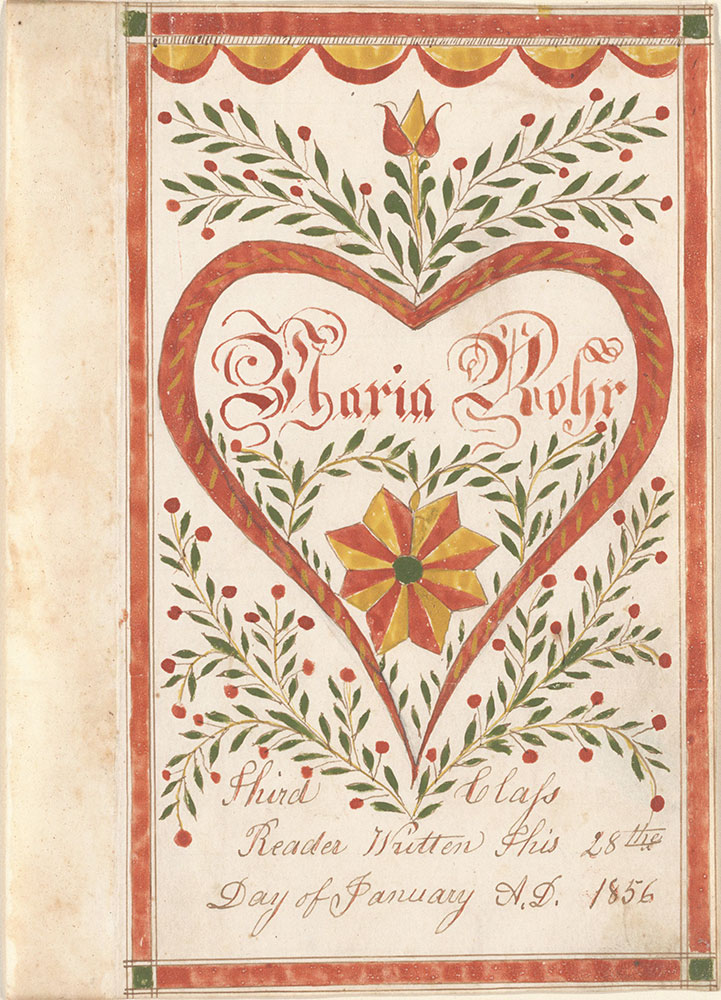 Maria Rohr
Third Claſs
Reader Written This 28the
Day of January A.D. 1856